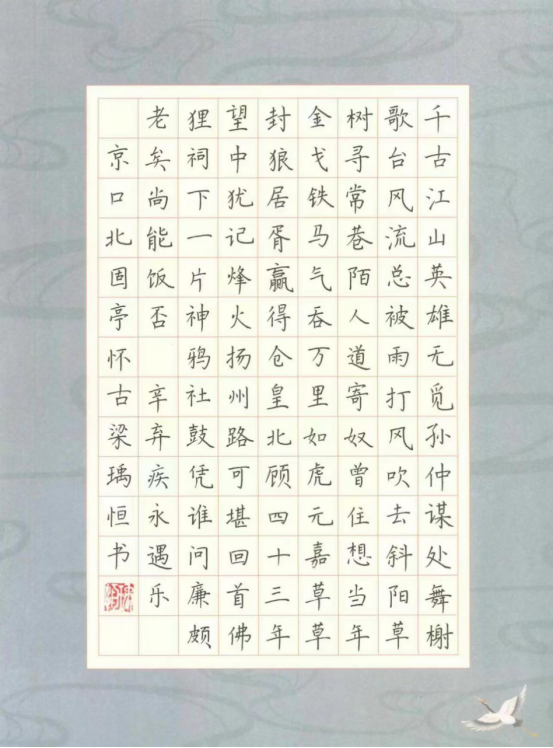 千古江山英雄无觅孙仲谋处舞榭
歌台风流总被雨打风吹去斜阳草
树寻常巷陌人道寄奴曾住想当年
金戈铁马气吞万里如虎元嘉草草
封狼居胥赢得仓皇北顾四十三年
望中犹记烽火扬州路可堪回首佛
狸祠下一片神鸦社鼓凭谁问廉颇
老矣尚能饭否 辛弃疾永遇乐
京口北固亭怀古梁瑀恒书